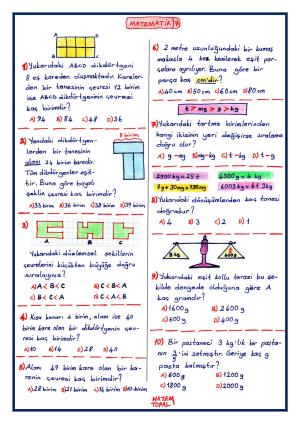 MATEMATİK 7
A
D
B
C
1) Yukarıdaki ABCD dikdörtgeni
8 eş kareden oluşmaktadır. Kareler-
den bir tanesinin çevresi 12 birim
ise ABCD dikdörtgeninin çevresi
kaç birimdir?
A) 94 B) 84 C) 48 D) 36
8 birim
2) Yandaki dikdörtgen-
lerden bir tanesinin
alanı 24 birim karedir.
Tüm dikdörtgenler eşit-
tir. Buna göre boyalı
şeklin çevresi kaç birimdir?
A) 33 birim B) 36 birim C) 38 birim D) 39 birim
3)
Yukarıdaki düzlemsel şekillerin
çevrelerini küçükten büyüğe doğru
sıralayınız?
A) A < B < C B) C < B < A
C) B < C < A D) B < A < C
4) Kısa kenarı 4 birim, alanı ise 40
birim kare olan bir dikdörtgenin çev-
resi kaç birimdir?
A) 10 B) 14 C) 28 D) 40
5) Alanı 49 birim kare olan bir ka-
renin çevresi kaç birimdir?
A) 28 birim B) 21 birim C) 14 birim D) 10 birim
6) 2 metre uzunluğundaki bir kumaş
makasla 4 kez kesilerek eşit par-
çalara ayrılıyor. Buna göre bir
parça kaç cm'dir?
A) 40 cm B) 50 cm C) 60 cm D) 80 cm
t > mg > g > kg
7) Yukarıdaki tartma birimlerinden
hangi ikisinin yeri değişirse sıralama
doğru olur?
A) g - mg B) mg - kg C) t - kg D) t - g
2500 kg = 25 t
4000 g = 4 kg
7 g + 30 mg = 730 mg
6003 kg = 6 t 3 kg
8) Yukarıdaki dönüşümlerden kaç tanesi
doğrudur?
A) 4 B) 3 C) 2 D) 1
9) Yukarıdaki eşit kollu terazi bu şe-
kilde dengede olduğuna göre A
kaç gramdır?
A) 1600 g B) 2600 g
C) 600 g D) 400 g
10) Bir pastaneci 3 kg'lık bir pasta-
nın 3/5 ini satmıştır. Geriye kaç g
pasta kalmıştır?
A) 600 g B) 1200 g
C) 1800 g D) 2000 g
MATEM
TOPAL